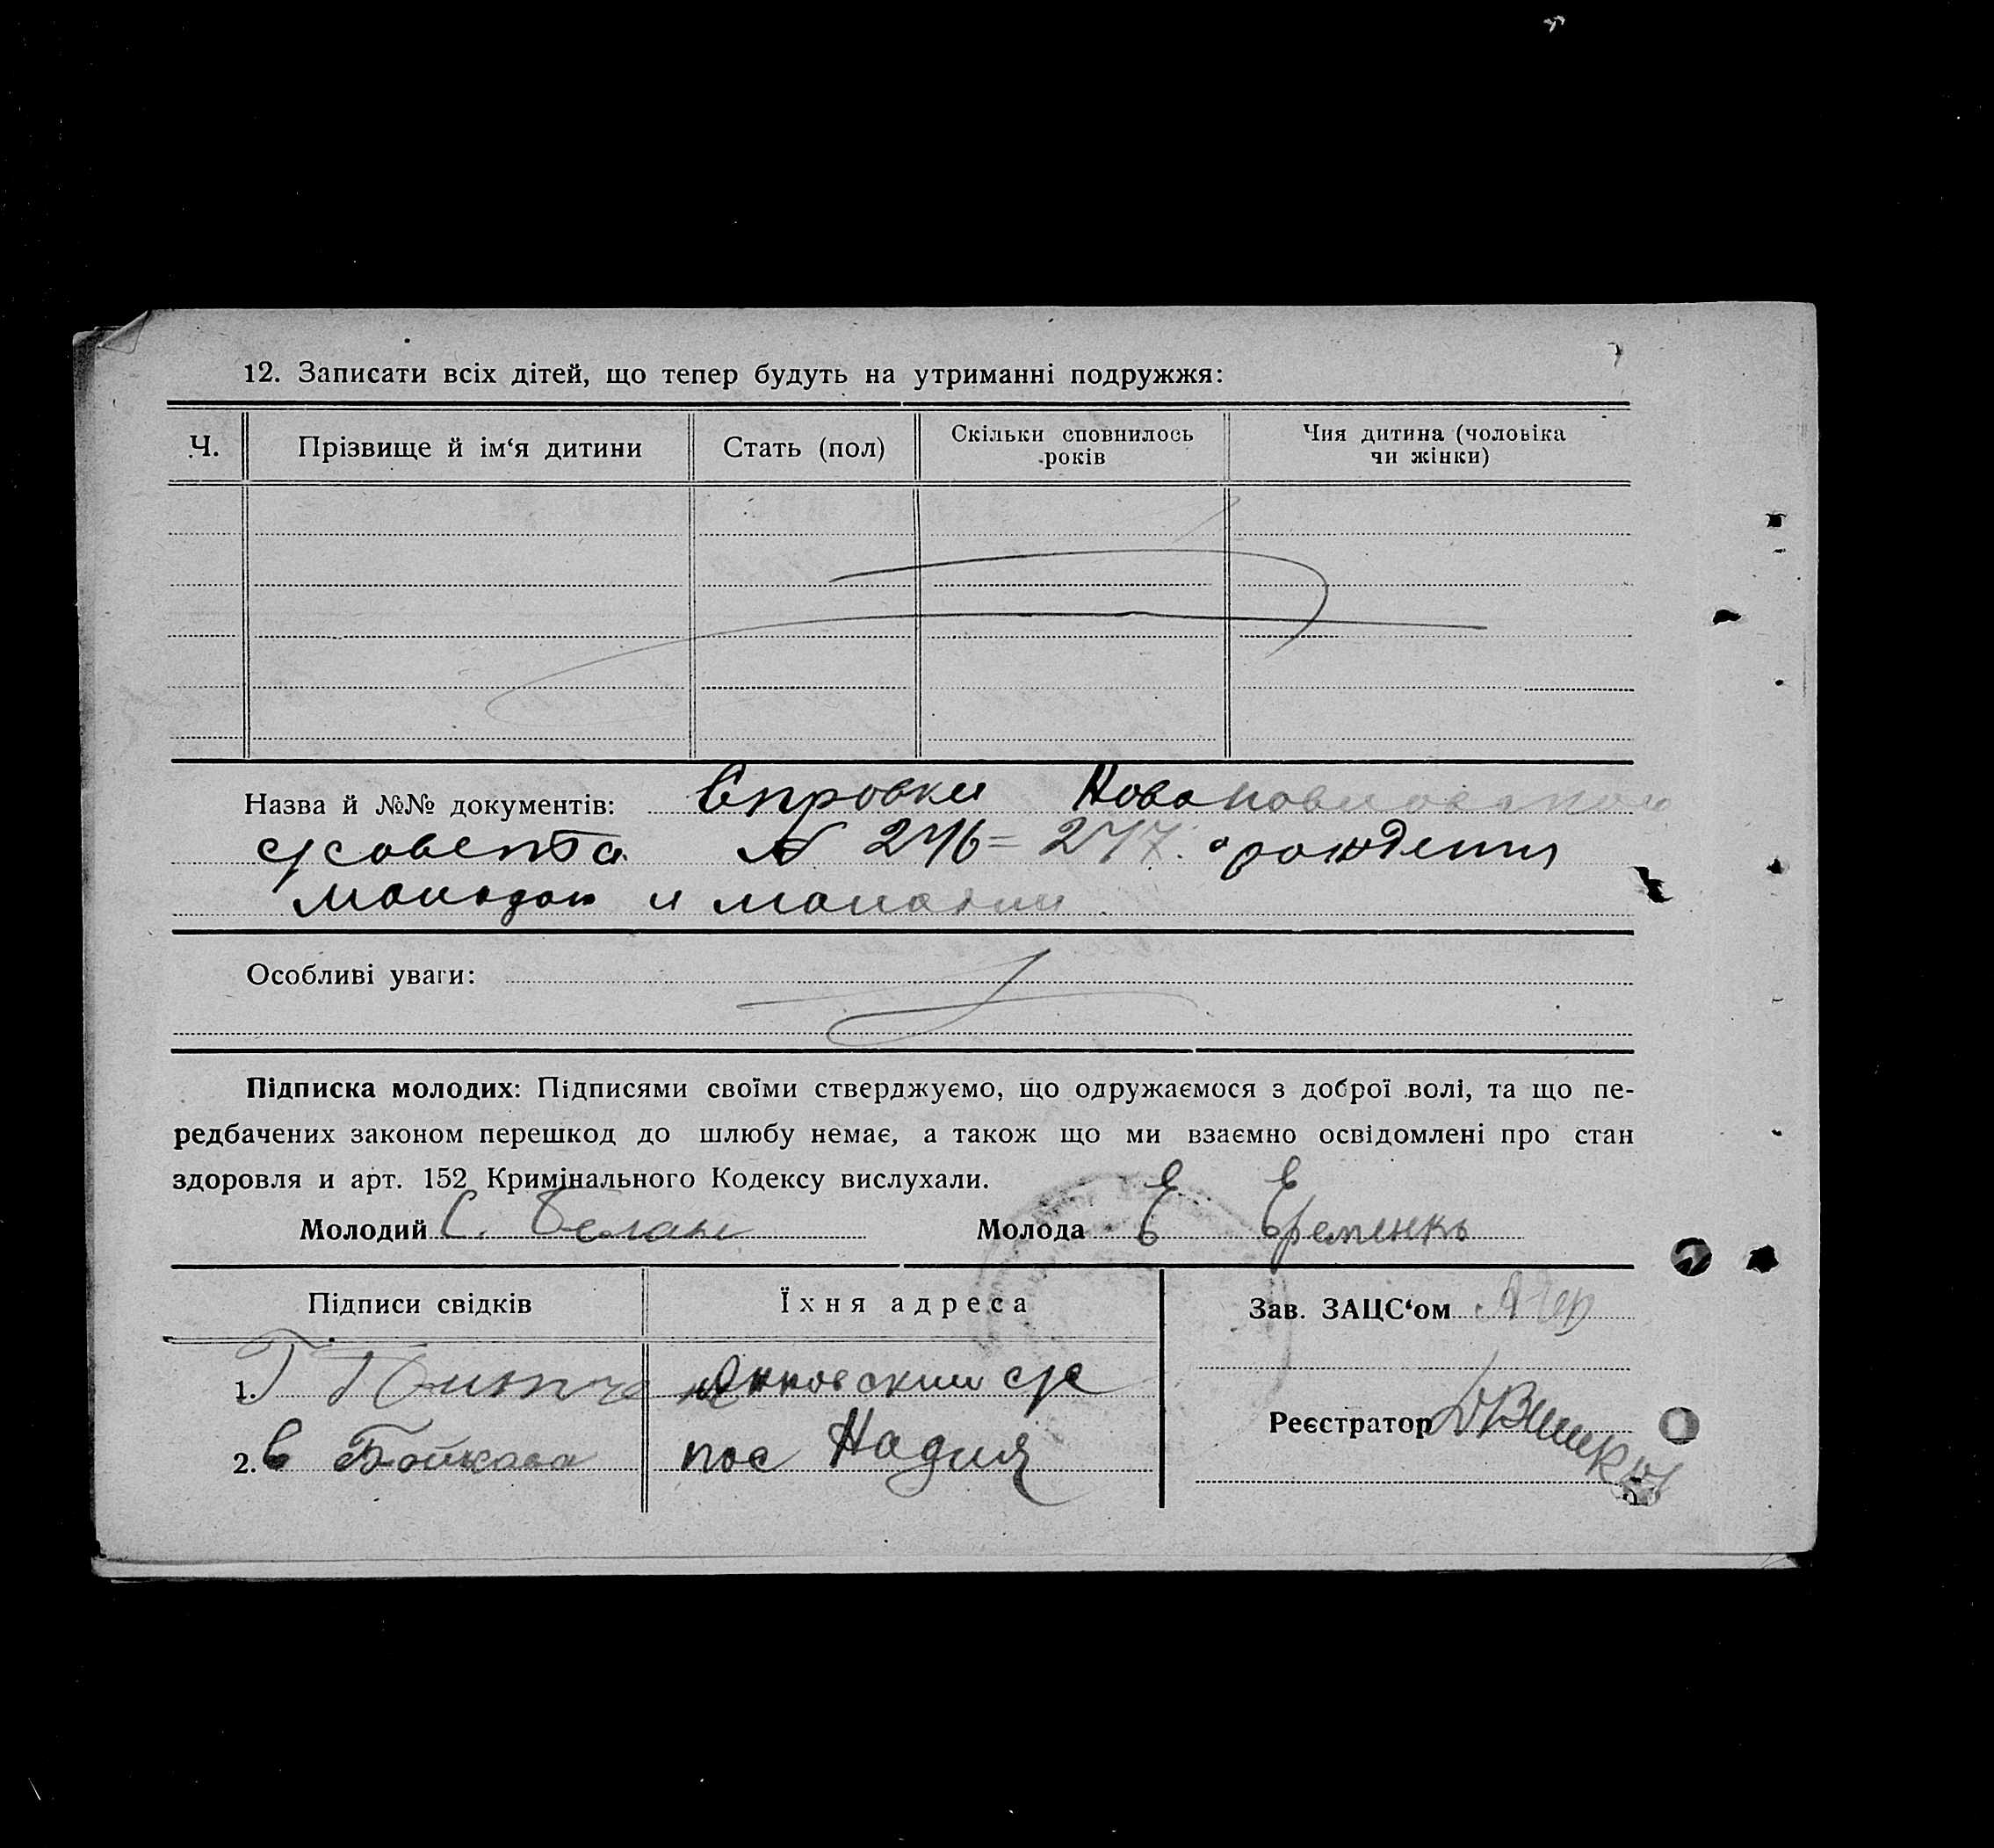 12. Записати всіх дітей, що тепер будуть на утриманні подружжя:
Ч. Прізвище й ім‘я дитини Стать (пол) Скільки сповнилось років Чия дитина (чоловіка чи жінки)
Назва й №№ документів: Справки
с/совета № 246= 247. о рождении
молодою и
Особливі уваги:
Підписка молодих: Підписями своїми стверджуємо, що одружаємося з доброї волі, та що пе-
редбачених законом перешкод до шлюбу немає, а також що ми взаємно освідомлені про стан
здоровля и арт. 152 Кримінального Кодексу вислухали.
Молодий С. Белан Молода Е Еременко
Підписи свідків Їхня адреса Зав. ЗАЦС‘ом
1. Г с/с
Реєстратор
2. В Бойкова пос Надия